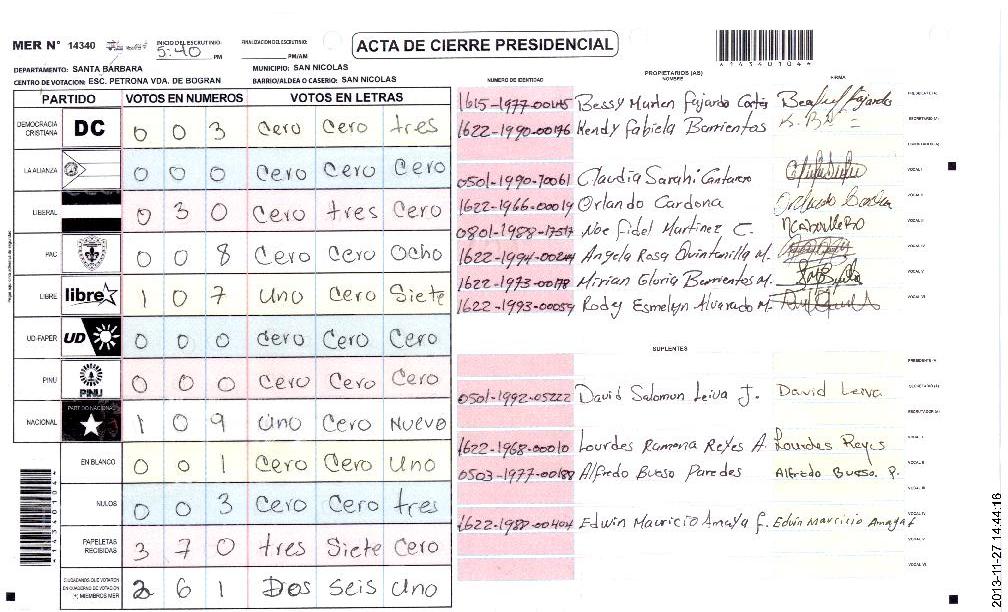 MER N° 14340 INICIO DEL ESCRUTINIO: 5:40 PM FINALIZACION DEL ESCRUTINIO: PM/AM ACTA DE CIERRE PRESIDENCIAL
41434010440
DEPARTAMENTO: SANTA BARBARA MUNICIPIO: SAN NICOLAS
CENTRO DE VOTACION: ESC. PETRONA VDA. DE BOGRAN BARRIO/ALDEA O CASERIO: SAN NICOLAS
PARTIDO VOTOS EN NUMEROS VOTOS EN LETRAS
DEMOCRACIA CRISTIANA DC 0 0 3 Cero Cero tres
LA ALIANZA 0 0 0 Cero Cero Cero
LIBERAL 0 3 0 Cero tres Cero
PAC 0 0 8 Cero Cero Ocho
LIBRE libre 1 0 7 Uno Cero Siete
UD-FAPER UD 0 0 0 Cero Cero Cero
PINU PINU 0 0 0 Cero Cero Cero
NACIONAL PARTIDO NACIONAL 1 0 9 Uno Cero Nueve
EN BLANCO 0 0 1 Cero Cero Uno
NULOS 0 0 3 Cero Cero tres
PAPELETAS RECIBIDAS 3 7 0 tres Siete Cero
CIUDADANOS QUE VOTARON EN CUADERNO DE VOTACION (*) MIEMBROS MER 2 6 1 Dos Seis Uno
PROPIETARIOS (AS)
NUMERO DE IDENTIDAD NOMBRE FIRMA
1615-1977-00145 Bessy Marlen Fajardo PRESIDENTE (A)
1622-1990-00176 Kendy Fabiela Barrientos SECRETARIO (A)
ESCRUTADOR (A)
0501-1990-10061 Claudia Sarahi Cantarero VOCAL I
1622-1966-00019 Orlando Cardona VOCAL II
0801-1988-17517 Noe Fidel Martinez C. VOCAL III
1622-1994-00244 Angela Rosa Quintanilla M. VOCAL IV
1622-1973-00178 Mirian Gloria Barrientos M. VOCAL V
1622-1993-00059 Rody Esmelyn Alvarado M. VOCAL VI
SUPLENTES
PRESIDENTE (A)
0501-1992-05222 David Salomon Leiva J. David Leiva SECRETARIO (A)
ESCRUTADOR (A)
1622-1968-00010 Lourdes Ramona Reyes A. Lourdes Reyes VOCAL I
0503-1977-00188 Alfredo Bueso Paredes Alfredo Bueso. P. VOCAL II
VOCAL III
1622-1982-00404 Edwin Mauricio Amaya F. Edwin Mauricio Amaya F VOCAL IV
VOCAL V
VOCAL VI
41434010440
2013-11-27 14:44:16